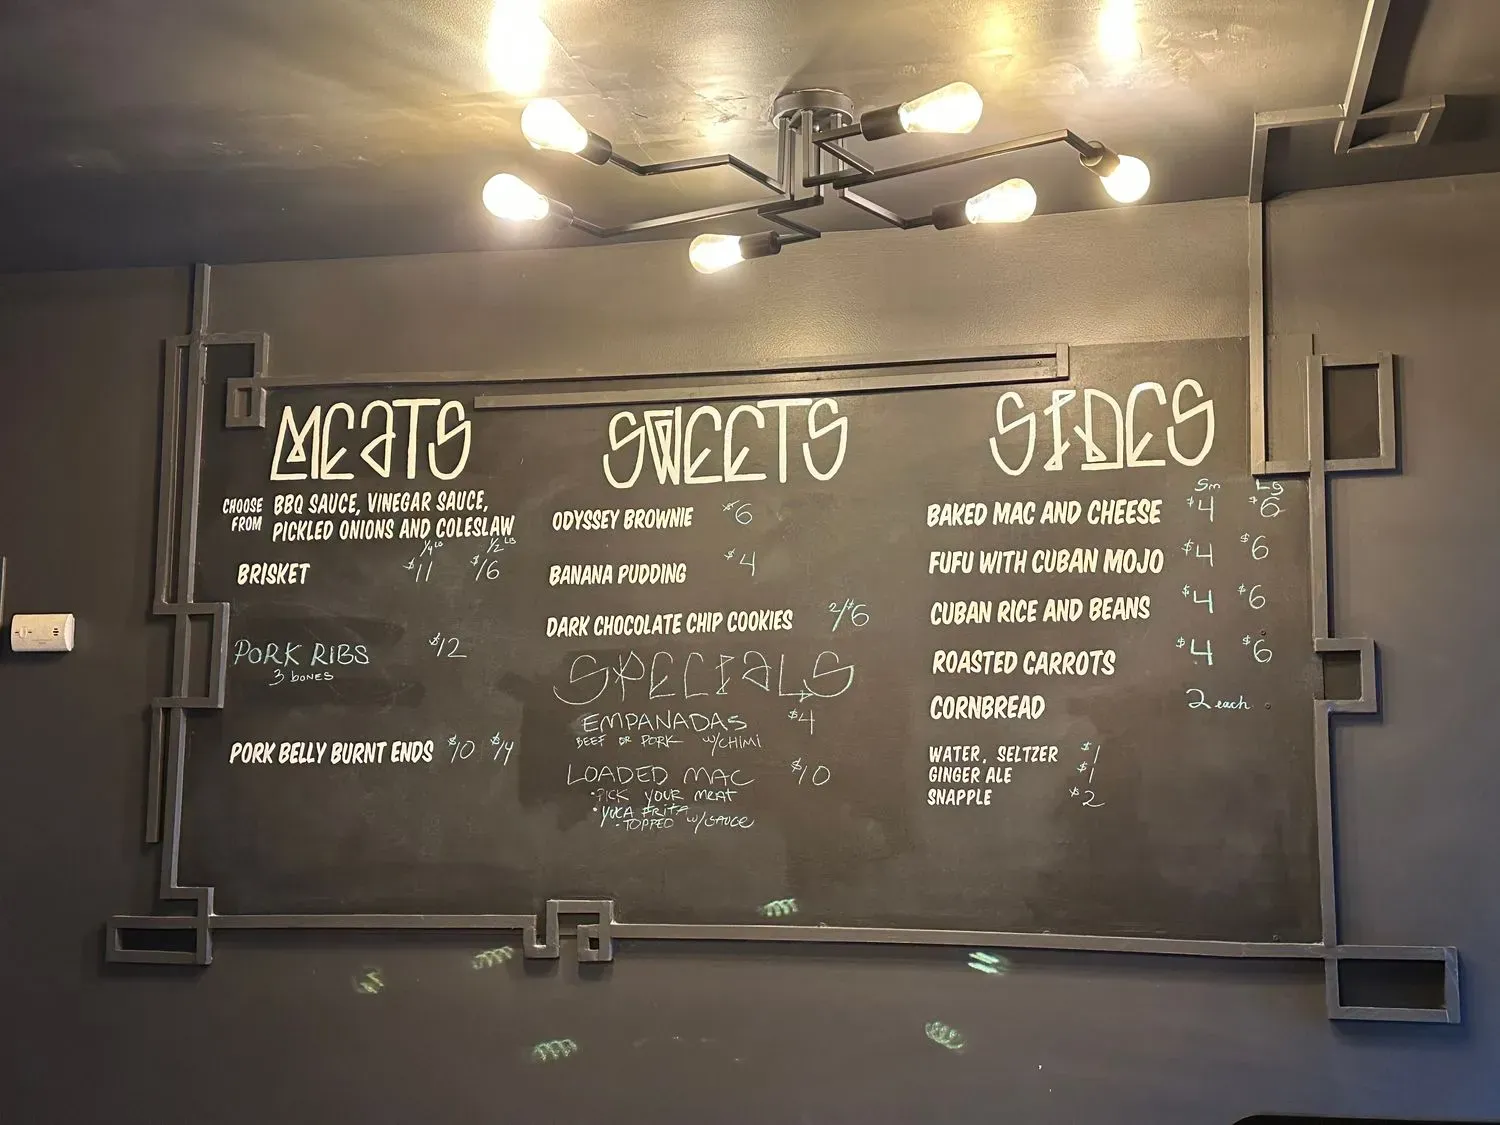 MEATS
CHOOSE FROM BBQ SAUCE, VINEGAR SAUCE,
PICKLED ONIONS AND COLESLAW
1/4 LB 1/2 LB
BRISKET $11 $16
PORK RIBS $12
3 BONES
PORK BELLY BURNT ENDS $10 $14
SWEETS
ODYSSEY BROWNIE $6
BANANA PUDDING $4
DARK CHOCOLATE CHIP COOKIES 2/$6
SPECIALS
EMPANADAS $4
BEEF OR PORK W/CHIMI
LOADED MAC $10
• PICK YOUR MEAT
• YUCA FRITA
- TOPPED W/SAUCE
SIDES
Sm Lg
BAKED MAC AND CHEESE $4 $6
FUFU WITH CUBAN MOJO $4 $6
CUBAN RICE AND BEANS $4 $6
ROASTED CARROTS $4 $6
CORNBREAD 2 each
WATER, SELTZER $1
GINGER ALE $1
SNAPPLE $2